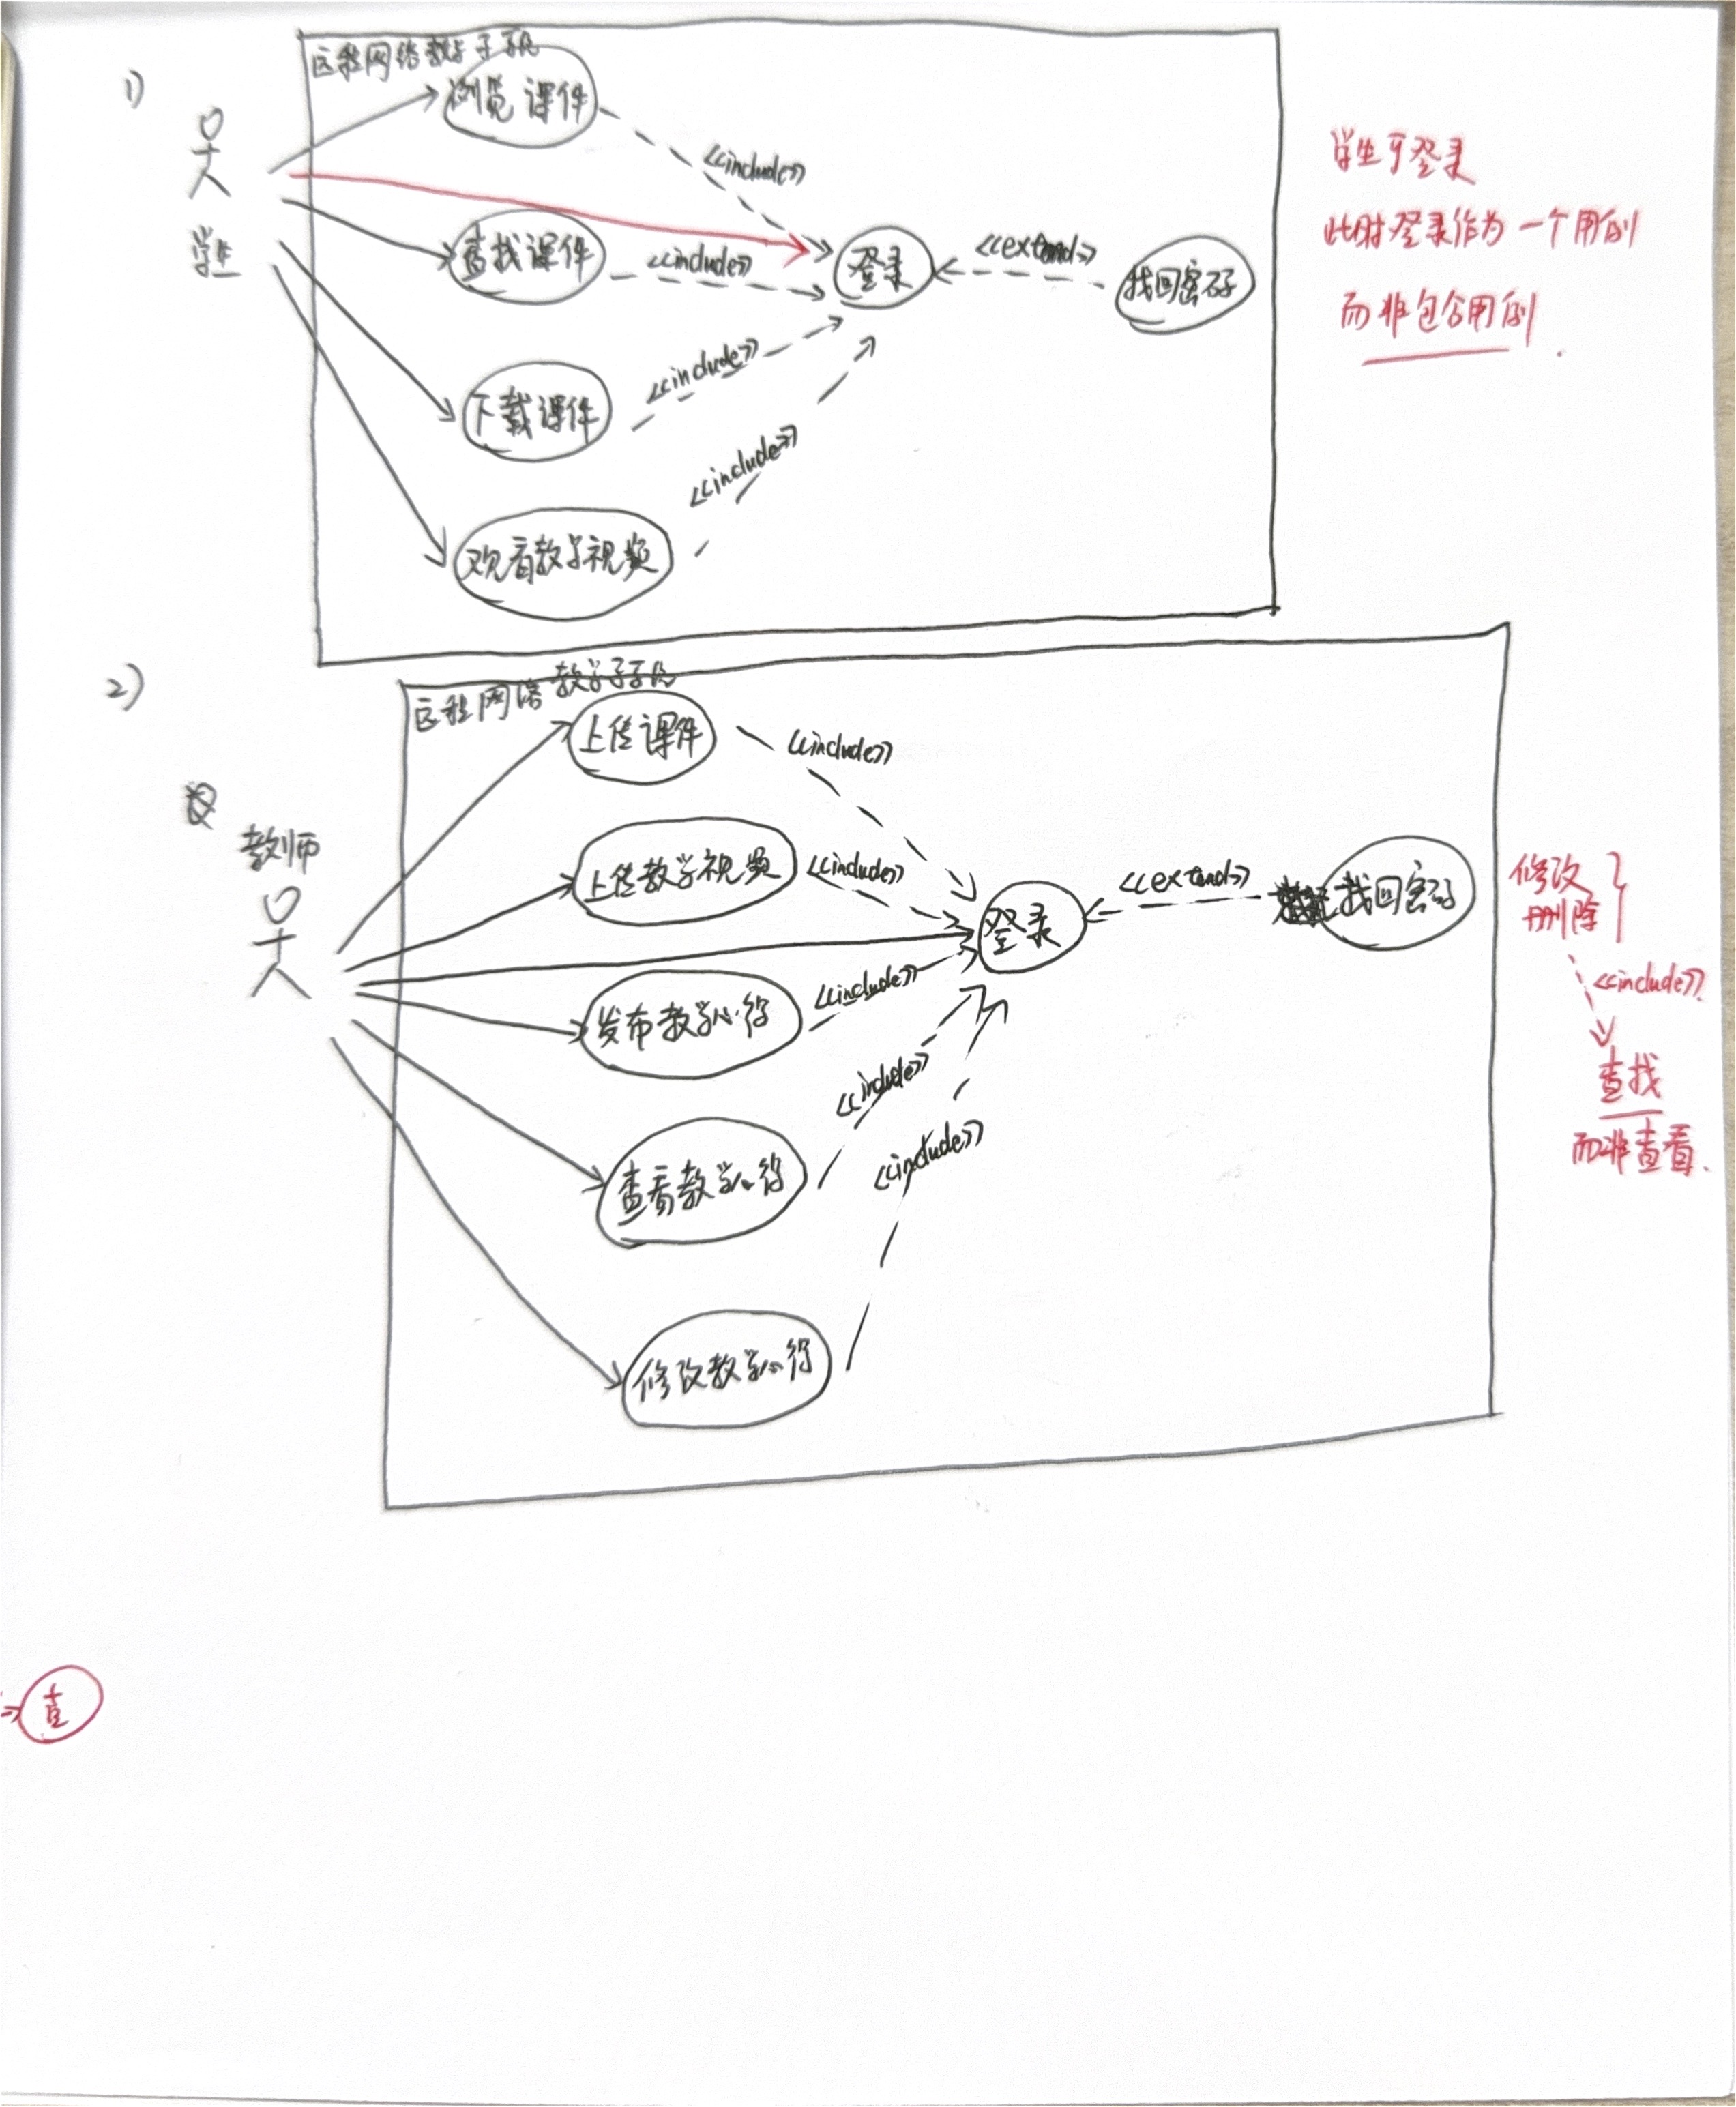 1)
远程网络教学子系统
浏览课件
<<include>>
学生可登录
此时登录作为一个用例
而非包含用例.
学生
查找课件
<<include>>
登录
<<extend>>
找回密码
下载课件
<<include>>
观看教学视频
<<include>>
2)
远程网络教学子系统
上传课件
<<include>>
教师
上传教学视频
<<include>>
登录
<<extend>>
找回密码
修改
删除
<<include>>
查找
而非查看.
发布教学心得
<<include>>
查看教学心得
<<include>>
修改教学心得
<<include>>
查